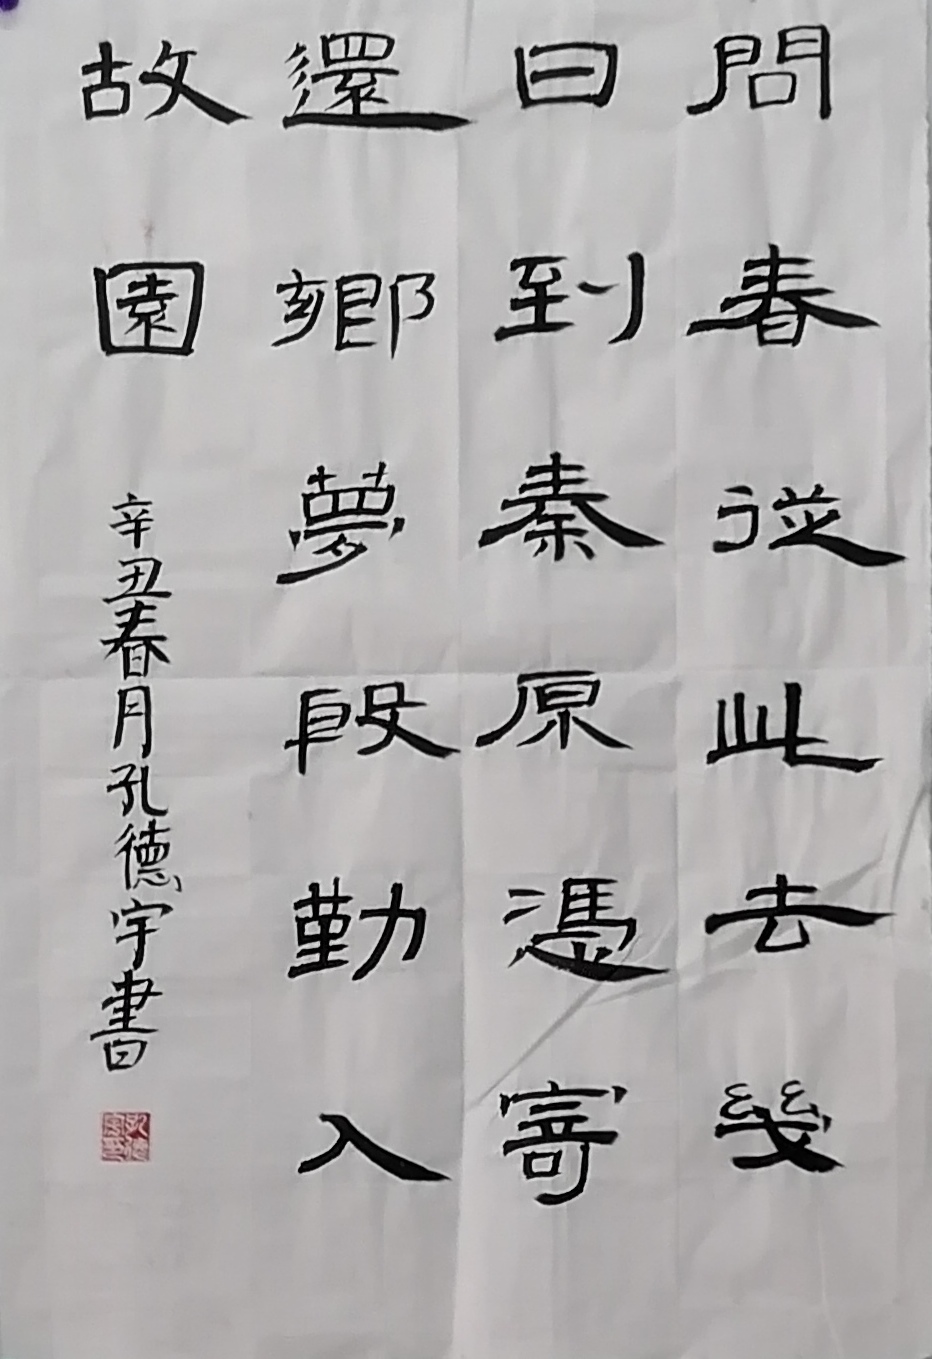 問春從此去幾
日到秦原憑寄
還鄉夢殷勤入
故園
辛丑春月孔德宇書